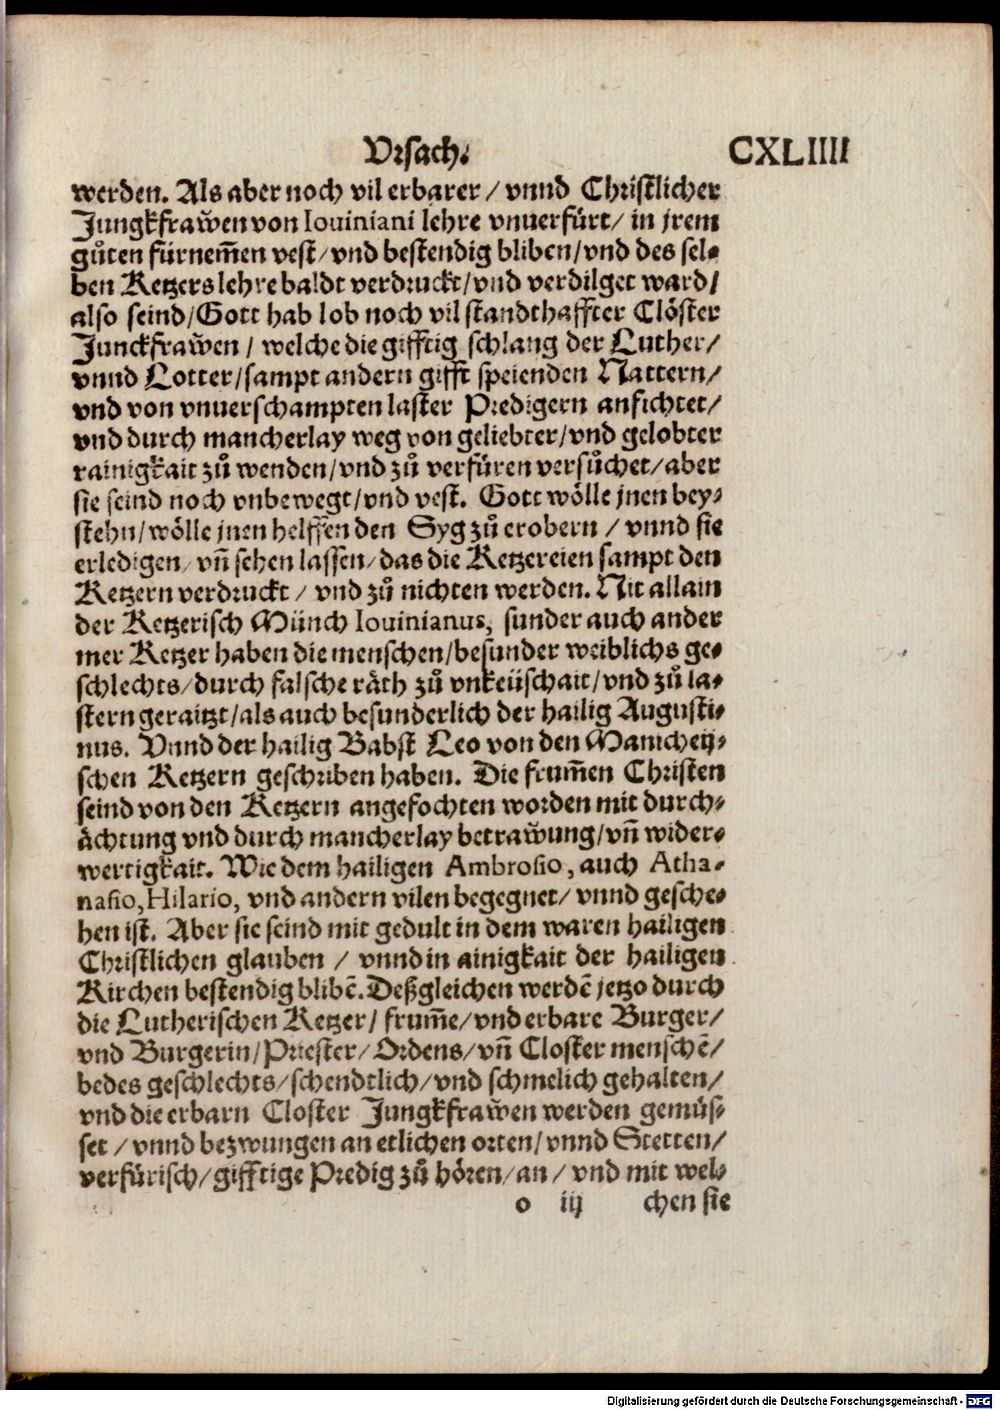 Vrsach. CXLIIII
werden. Als aber noch vil erbarer / vnnd Christlicher
Jungkfraw̃en von Iouiniani lehre vnuerfürt / in jrem
gůten fürnem̃en vest / vnd bestendig bliben / vnd des sel⸗
ben Ketzers lehre baldt verdruckt / vnd verdilget ward /
also seind / Gott hab lob noch vil standthaffter Clöster
Junckfraw̃en / welche die gifftig schlang der Luther /
vnnd Lotter / sampt andern gifft speienden Nattern /
vnd von vnuerschampten laster Predigern anfichtet /
vnd durch mancherlay weg von geliebter / vnd gelobter
rainigkait zů wenden / vnd zů verfüren versůchet / aber
sie seind noch vnbewegt / vnd vest. Gott wölle jnen bey⸗
stehn / wölle jnen helffen den Syg zů erobern / vnnd sie
erledigen / vñ sehen lassen / das die Ketzereien sampt den
Ketzern verdruckt / vnd zů nichten werden. Nit allain
der Ketzerisch Münch Iouinianus, sunder auch ander
mer Ketzer haben die menschen / besunder weiblichs ge⸗
schlechts / durch falsche räth zů vnkeüschait / vnd zů la⸗
stern geraitzt / als auch besunderlich der hailig Augusti⸗
nus. Vnnd der hailig Babst Leo von den Manicheij⸗
schen Ketzern geschriben haben. Die frum̃en Christen
seind von den Ketzern angefochten worden mit durch⸗
ächtung vnd durch mancherlay betraw̃ung / vñ wider⸗
wertigkait. Wie dem hailigen Ambrosio, auch Atha⸗
nasio, Hilario, vnd andern vilen begegnet / vnnd gesche⸗
hen ist. Aber sie seind mit gedult in dem waren hailigen
Christlichen glauben / vnnd in ainigkait der hailigen
Kirchen bestendig blibẽ. Deßgleichen werdẽ jetzo durch
die Lutherischen Ketzer / frum̃e / vnd erbare Burger /
vnd Burgerin / Priester / Ordens / vñ Closter menschẽ /
bedes geschlechts / schendtlich / vnd schmelich gehalten /
vnd die erbarn Closter Jungkfraw̃en werden gemüs⸗
set / vnnd bezwungen an etlichen orten / vnnd Stetten /
verfürisch / gifftige Predig zů hören / an / vnd mit wel⸗
o iij chen sie
Digitalisierung gefördert durch die Deutsche Forschungsgemeinschaft - DFG